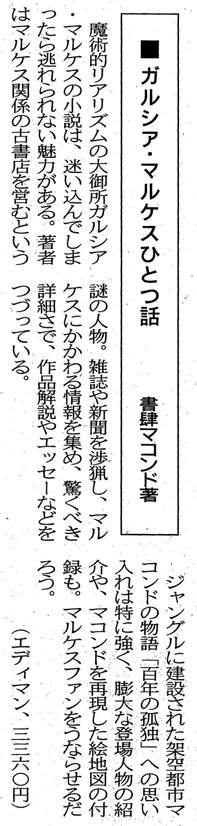 ■ ガルシア・マルケスひとつ話
書肆マコンド著
魔術的リアリズムの大御所ガルシア
・マルケスの小説は、迷い込んでしま
ったら逃れられない魅力がある。著者
はマルケス関係の古書店を営むという
謎の人物。雑誌や新聞を渉猟し、マル
ケスにかかわる情報を集め、驚くべき
詳細さで、作品解説やエッセーなどを
つづっている。
ジャングルに建設された架空都市マ
コンドの物語「百年の孤独」への思い
入れは特に強く、膨大な登場人物の紹
介や、マコンドを再現した絵地図の付
録も。マルケスファンをうならせるだ
ろう。
(エディマン、三三六〇円)